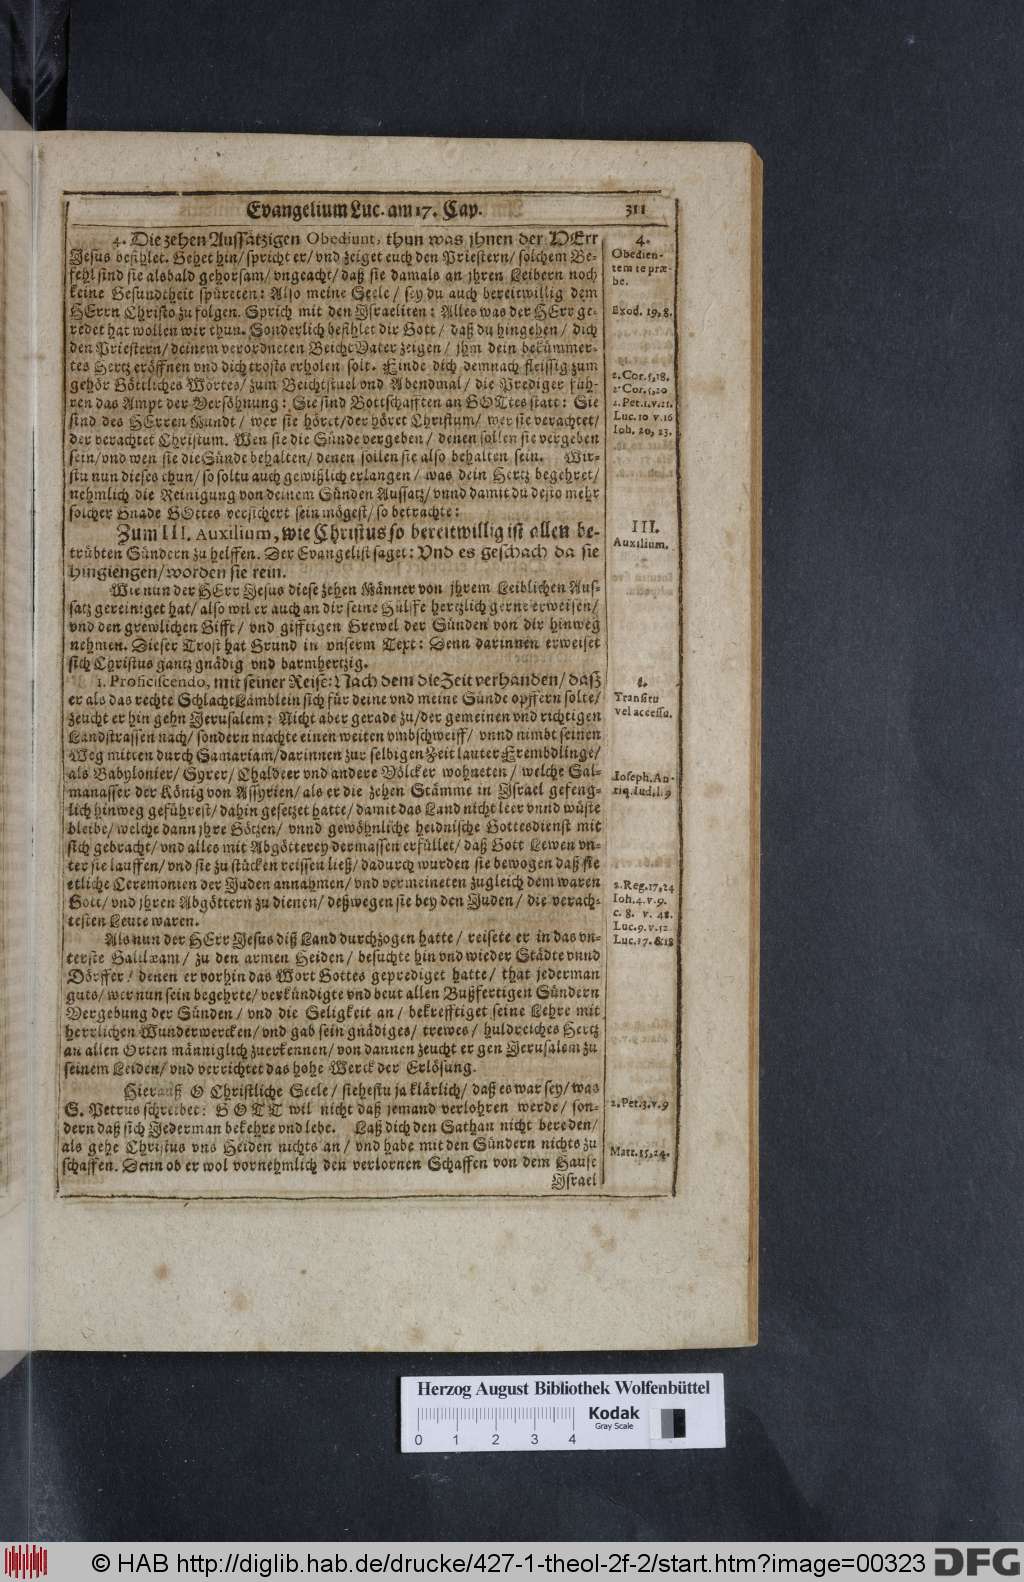 Evangelium Luc. am 17. Cap. 311
4. Die zehen Aussätzigen Obediunt, thun was jhnen der HErr
Jesus befihlet. Gehet hin/ spricht er/ vnd zeiget euch den Priestern/ solchem Be-
fehl sind sie alsbald gehorsam/ vngeacht/ daß sie damals an jhren Leibern noch
keine Gesundtheit spüreten: Also meine Seele/ sey du auch bereitwillig dem
HErrn Christo zu folgen. Sprich mit den Israeliten: Alles was der HErr ge-
redet hat wollen wir thun. Sonderlich befihlet dir Gott/ daß du hingehen/ dich
den Priestern/ deinem verordneten Beicht Vater zeigen/ jhm dein bekümmer-
tes Hertz eröffnen vnd dich trosts erholen solt. Finde dich demnach fleissig zum
gehör Göttliches Wortes/ zum Beichtstuel vnd Abendmal/ die Prediger füh-
ren das Ampt der Versöhnung: Sie sind Bottschafften an GOttes statt: Sie
sind des HErren Mundt/ wer sie höret/ der höret Christum/ wer sie verachtet/
der verachtet Christum. Wen sie die Sünde vergeben/ denen sollen sie vergeben
sein/ vnd wen sie die Sünde behalten/ denen sollen sie also behalten sein. Wir-
stu nun dieses thun/ so soltu auch gewißlich erlangen/ was dein Hertz begehret/
nehmlich die Reinigung von deinem Sünden Aussatz/ vnnd damit du desto mehr
solcher Gnade GOttes versichert sein mögest/ so betrachte:
Zum III. Auxilium, wie Christus so bereitwillig ist allen be-
trübten Sündern zu helffen. Der Evangelist saget: Vnd es geschach da sie
hingiengen/ worden sie rein.
Wie nun der HErr Jesus diese zehen Männer von jhrem Leiblichen Aus-
satz gereiniget hat/ also wil er auch an dir seine Hülffe hertzlich gerne erweisen/
vnd den grewlichen Gifft/ vnd gifftigen Grewel der Sünden von dir hinweg
nehmen. Dieser Trost hat Grund in vnserm Text: Denn darinnen erweiset
sich Christus gantz gnädig vnd barmhertzig.
1. Proficiscendo, mit seiner Reise: Nach dem die Zeit verhanden/ daß
er als das rechte SchlachtLämblein sich für deine vnd meine Sünde opffern solte/
zeucht er hin gehn Jerusalem: Nicht aber gerade zu/ der gemeinen vnd richtigen
Landstrassen nach/ sondern machte einen weiten vmbschweiff/ vnnd nimbt seinen
Weg mitten durch Samariam/ darinnen zur selbigen Zeit lauter Frembdlinge/
als Babylonier/ Syrer/ Chaldeer vnd andere Völcker wohneten/ welche Sal-
manasser der König von Assyrien/ als er die zehen Stämme in Israel gefeng-
lich hinweg geführest/ dahin gesetzet hatte/ damit das Land nicht leer vnnd wüste
bleibe/ welche dann jhre Götzen/ vnnd gewöhnliche heidnische Gottesdienst mit
sich gebracht/ vnd alles mit Abgötterey dermassen erfüllet/ daß Gott Lewen vn-
ter sie lauffen/ vnd sie zu stücken reissen ließ/ dadurch wurden sie bewogen daß sie
etliche Ceremonien der Juden annahmen/ vnd vermeineten zugleich dem waren
Gott/ vnd jhren Abgöttern zu dienen/ deßwegen sie bey den Juden/ die verach-
testen Leute waren.
Als nun der HErr Jesus diß Land durchzogen hatte/ reisete er in das vn-
terste Galilæam/ zu den armen Heiden/ besuchte hin vnd wieder Städte vnnd
Dörffer/ denen er vorhin das Wort Gottes geprediget hatte/ that jederman
guts/ wer nun sein begehrte/ verkündigte vnd beut allen Bußfertigen Sündern
Vergebung der Sünden/ vnd die Seligkeit an/ bekrefftiget seine Lehre mit
herrlichen Wunderwercken/ vnd gab sein gnädiges/ trewes/ huldreiches Hertz
an allen Orten männiglich zuerkennen/ von dannen zeucht er gen Jerusalem zu
seinem Leiden/ vnd verrichtet das hohe Werck der Erlösung.
Hierauß O Christliche Seele/ siehestu ja klärlich/ daß es war sey/ was
S. Petrus schreibet: GOTT wil nicht daß jemand verlohren werde/ son-
dern daß sich Jederman bekehre vnd lebe. Laß dich den Sathan nicht bereden/
als gehe Christus vns Heiden nichts an/ vnd habe mit den Sündern nichts zu
schaffen. Denn ob er wol vornehmlich den verlornen Schaffen von dem Hause
Israel
4.
Obedien-
tem te præ-
be.
Exod. 19, 8.
2. Cor. 5, 18.
2 Cor. 5, 20
2. Pet. 1. v. 21.
Luc. 10 v. 16
Ioh. 20, 23.
III.
Auxilium.
1.
Transitu
vel accessu.
Ioseph. An-
tiq. Iud. l. 9
2. Reg. 17, 24
Ioh. 4. v. 9.
c. 8. v. 48.
Luc. 9. v. 52
Luc. 17. & 18
2. Pet. 3. v. 9
Matt. 15, 24.
Herzog August Bibliothek Wolfenbüttel
Kodak
Gray Scale
0 1 2 3 4
© HAB http://diglib.hab.de/drucke/427-1-theol-2f-2/start.htm?image=00323 DFG